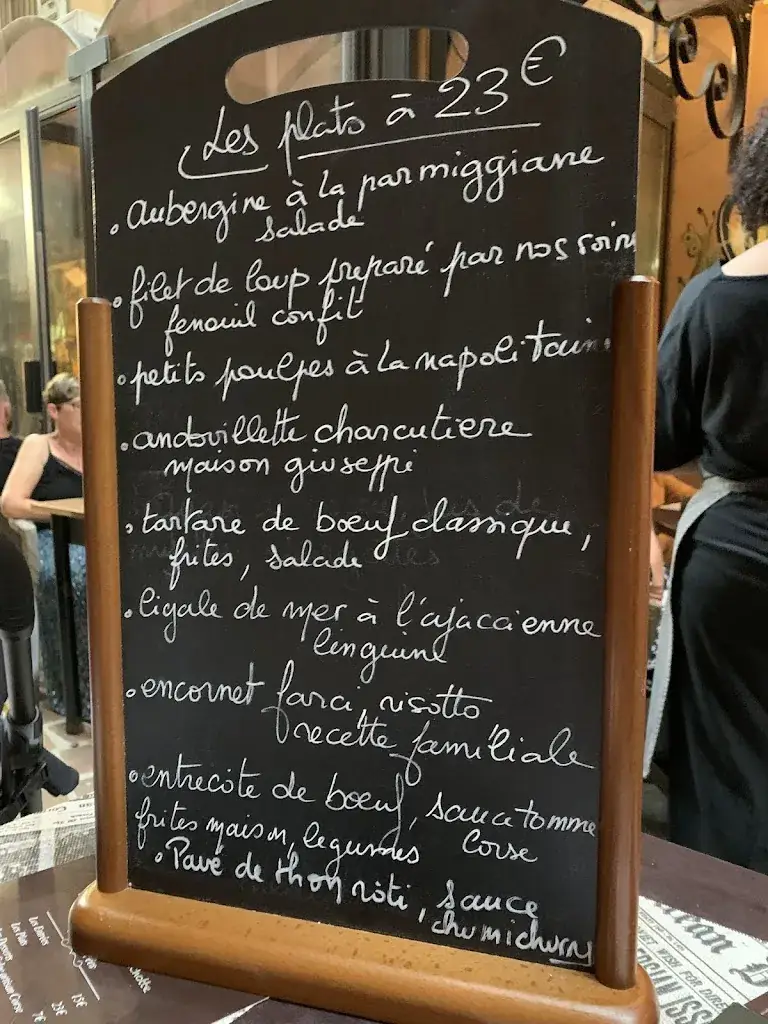 Les plats à 23€
• aubergine à la parmiggiane
salade
• filet de loup preparé par nos soins
fenouil confit
• petits poulpes à la napolitaine
• andouillette charcutiere
maison giuseppi
• tartare de bœuf classique,
frites, salade
• cigale de mer à l'ajaccienne
linguine
• encornet farci, risotto
recette familiale
• entrecôte de boeuf, sauce tomme
frites maison, legumes Corse
• Pavé de thon rôti, sauce
chumichurry